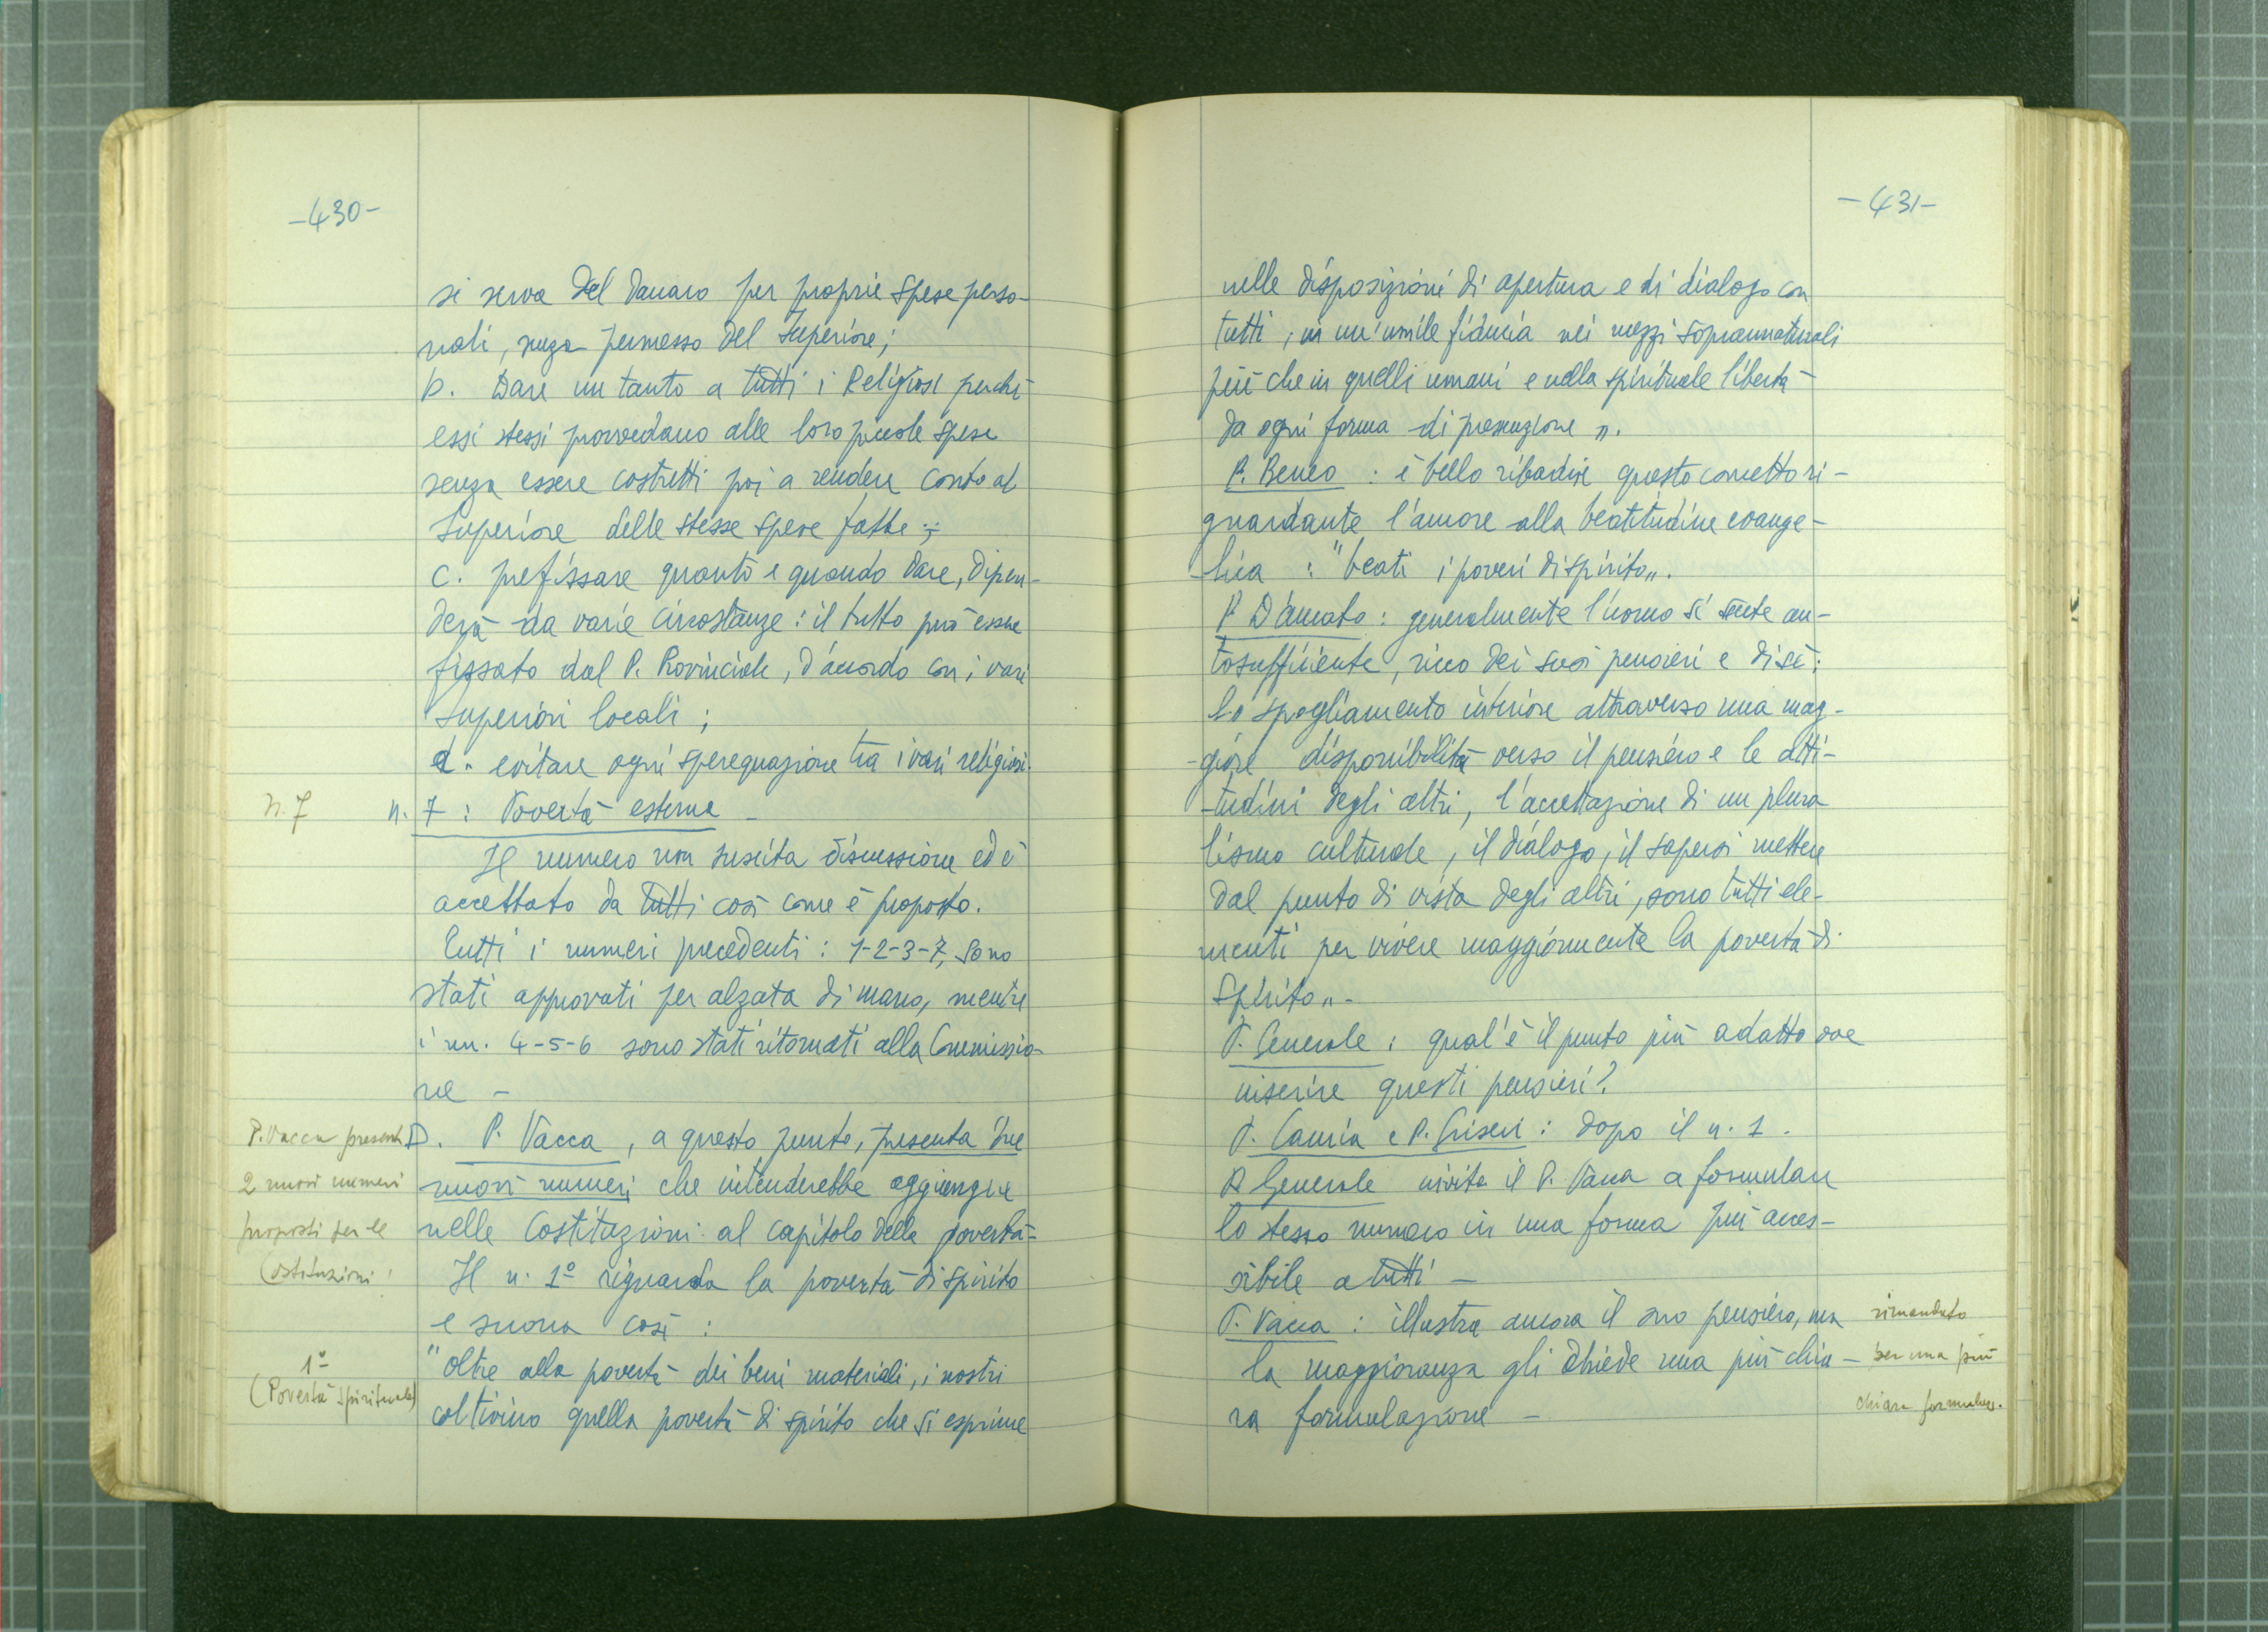 -430-
si serva del danaro per proprie spese perso-
nali, senza permesso del Superiore;
b. Dare un tanto a tutti i Religiosi perchè
essi stessi provvedano alle loro piccole spese
senza essere costretti poi a rendere conto al
Superiore delle stesse spese fatte;
c. prefissare quanto e quando dare, dipen-
derà da varie circostanze: il tutto può essere
fissato dal P. Provinciale, d'accordo con i vari
superiori locali;
d. evitare ogni sperequazione tra i vari religiosi.
n. 7
n. 7: Povertà esterna -
Il numero non suscita discussione ed è
accettato da tutti così come è proposto.
Tutti i numeri precedenti: 1-2-3-7, sono
stati approvati per alzata di mano, mentre
i nn. 4-5-6 sono stati ritornati alla Commissio-
ne -
P. Vacca present
2 nuovi numeri
proposti per le
Costituzioni
D. P. Vacca, a questo punto, presenta due
nuovi numeri che intenderebbe aggiungere
nelle Costituzioni al capitolo della povertà-
Il n. 1º riguarda la povertà di spirito
e suona così:
1º
(Povertà spirituale)
"Oltre alla povertà dei beni materiali, i nostri
coltivino quella povertà di spirito che si esprime
-431-
nelle disposizioni di apertura e di dialogo con
tutti, in un'umile fiducia nei mezzi soprannaturali
più che in quelli umani e nella spirituale libertà
da ogni forma di presunzione".
P. Beneo: è bello ribadire questo concetto ri-
guardante l'amore alla beatitudine evange-
lica: "beati i poveri di spirito".
P. D'Amato: generalmente l'uomo si sente au-
tosufficiente, ricco dei suoi pensieri e di sè;
lo spogliamento interiore attraverso una mag-
-giore disponibilità verso il pensiero e le atti-
-tudini degli altri, l'accettazione di un plura
lismo culturale, il dialogo, il sapersi mettere
dal punto di vista degli altri, sono tutti ele-
menti per vivere maggiormente la povertà di
spirito".-
P. Generale: qual'è il punto più adatto ove
inserire questi pensieri?
P. Cauria e P. Griseri: dopo il n. 1.
P. Generale invita il P. Vacca a formulare
lo stesso numero in una forma più acces-
sibile a tutti -
P. Vacca: illustra ancora il suo pensiero, ma
la maggioranza gli chiede una più chia-
ra formulazione -
rimandato
per una più
chiara formulaz.